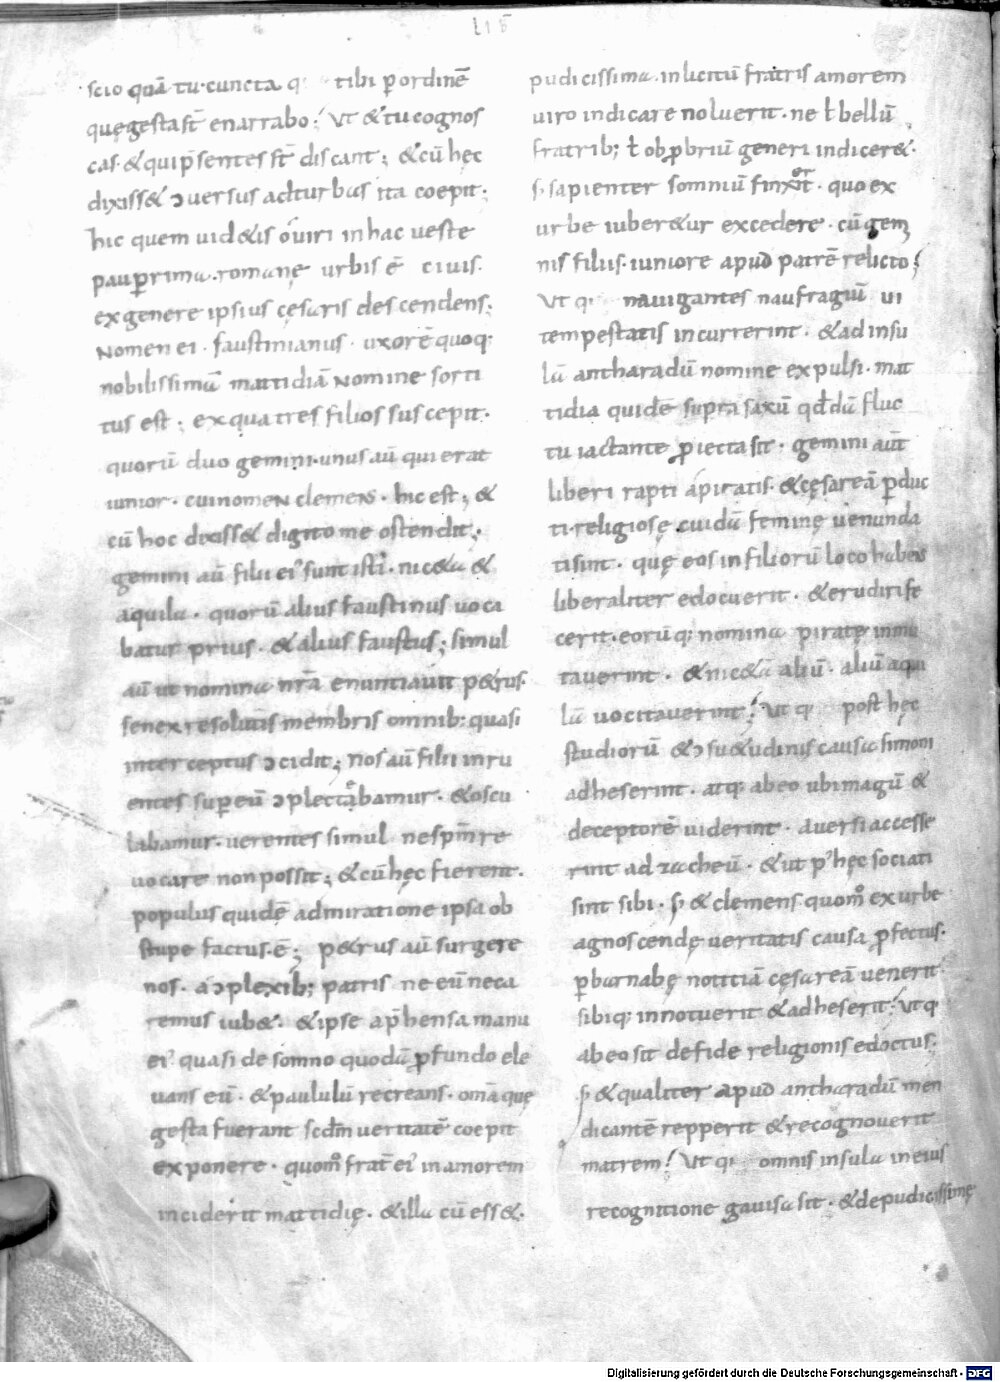 L I B
scio quā tu. cuncta q: tibi ꝑ ordinē
quęgesta st̄ enarrabo; Vt & tu cognos
cas. & qui p̄sentes st̄ discant; & cū hęc
dixiss& ɔuersus ad turbas ita coepit;
hic quem uid&is o uiri in hac ueste
pauꝑrima. romanę urbis ē ciuis.
ex genere ipsius cęsaris descendens;
Nomen ei. faustinianus. uxorē quoq:
nobilissimā mattidiā Nomine sorti
tus est; ex qua tres filios suscepit.
quorū duo gemini. unus aū qui erat
iunior. cui nomeN clemeNs. hic est; &
cū hoc dixiss& digito me ostendit;
gemini aū filii ei' sunt isti. nic&a &
aquila. quorū alius faustinus uoca
batur prius. & alius faustus; simul
aū ut nomina nr̄a enuntiauit p&rus.
senex resolutis membris omnib: quasi
interceptus ɔcidit; nos aū filii inru
entes super eū ɔplectabamur. & oscu
labamur. uerentes simul ne sp̄m re
uocare non possit; & cū hęc fierent.
populus quidē admiratione ipsa ob
stupefactus. ē; p&rus aū surgere
nos. a ɔplexib; patris ne eū neca
remus iub&. & ipse app̄hensa manu
ei' quasi de somno quodā ꝓfundo ele
uans eū. & paululū recreans. om̄a quę
gesta fuerant scd̄m ueritatē coepit
exponere. quom̄ frat̄ ei' in amorem
inciderit mattidię. & illa cū ess&.
pudicissima. inlicitū fratris amorem
uiro indicare noluerit. ne ł bellū
fratrib; ł obꝓbriū generi indicer&.
s; sapienter somniū finxit. quo ex
urbe iuber&ur excedere. cū gem
nis filiis. iuniore apud patrē relicto;
Vt q: nauigantes naufragiū ui
tempestatis incurrerint. & ad insu
lā antharadū nomine expulsi. mat
tidia quidē supra saxū qd̄dā fluc
tu iactante ꝓiecta sit. gemini aūt
liberi rapti a piratis. & cęsareā ꝑduc
ti. religiosę cuidā feminę uenunda
ti sint. quę eos in filiorū loco habens
liberaliter edocuerit. & erudiri fe
cerit. eorū q: nomina piratę inmu
tauerint. & nic&ā aliū. aliū aqui
lā uocitauerint; Vt q: post hęc
studiorū & ɔsu&udinis causa simoni
adheserint. atq: ab eo ubi magū &
deceptorē uiderint. auersi accesse
rint ad zacheū. & ut p' hęc sociati
sint sibi. s; & clemens quom̄ ex urbe
agnoscendę ueritatis causa ꝓfectus.
ꝑ barnabę notitiā cęsareā uenerit.
sibiq: innotuerit & adheserit; Vt q:
ab eo sit de fide religionis edoctus;
s; & qualiter apud antharadū men
dicantē reppererit & recognouerit
matrem; Vt q: omnis insula in eius
recognitione gauisa sit. & de pudicissimę
Digitalisierung gefördert durch die Deutsche Forschungsgemeinschaft - DFG